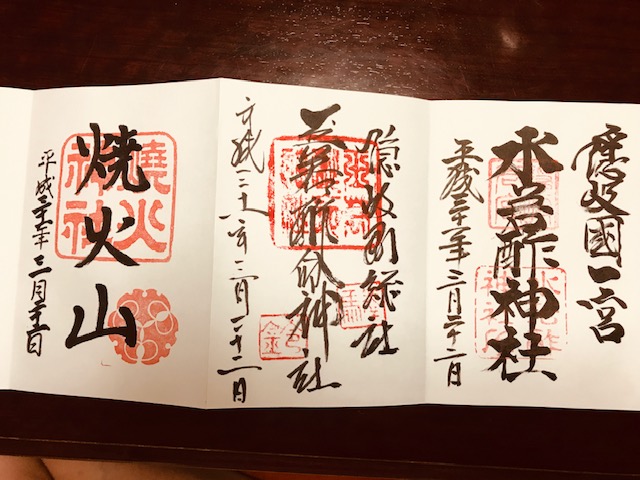 隠岐國一宮
水若酢神社
平成三十一年三月二十二日
隠岐国総社
玉若酢命神社
平成三十一年三月二十二日
焼火山
燒火神社
平成三十一年三月二十一日